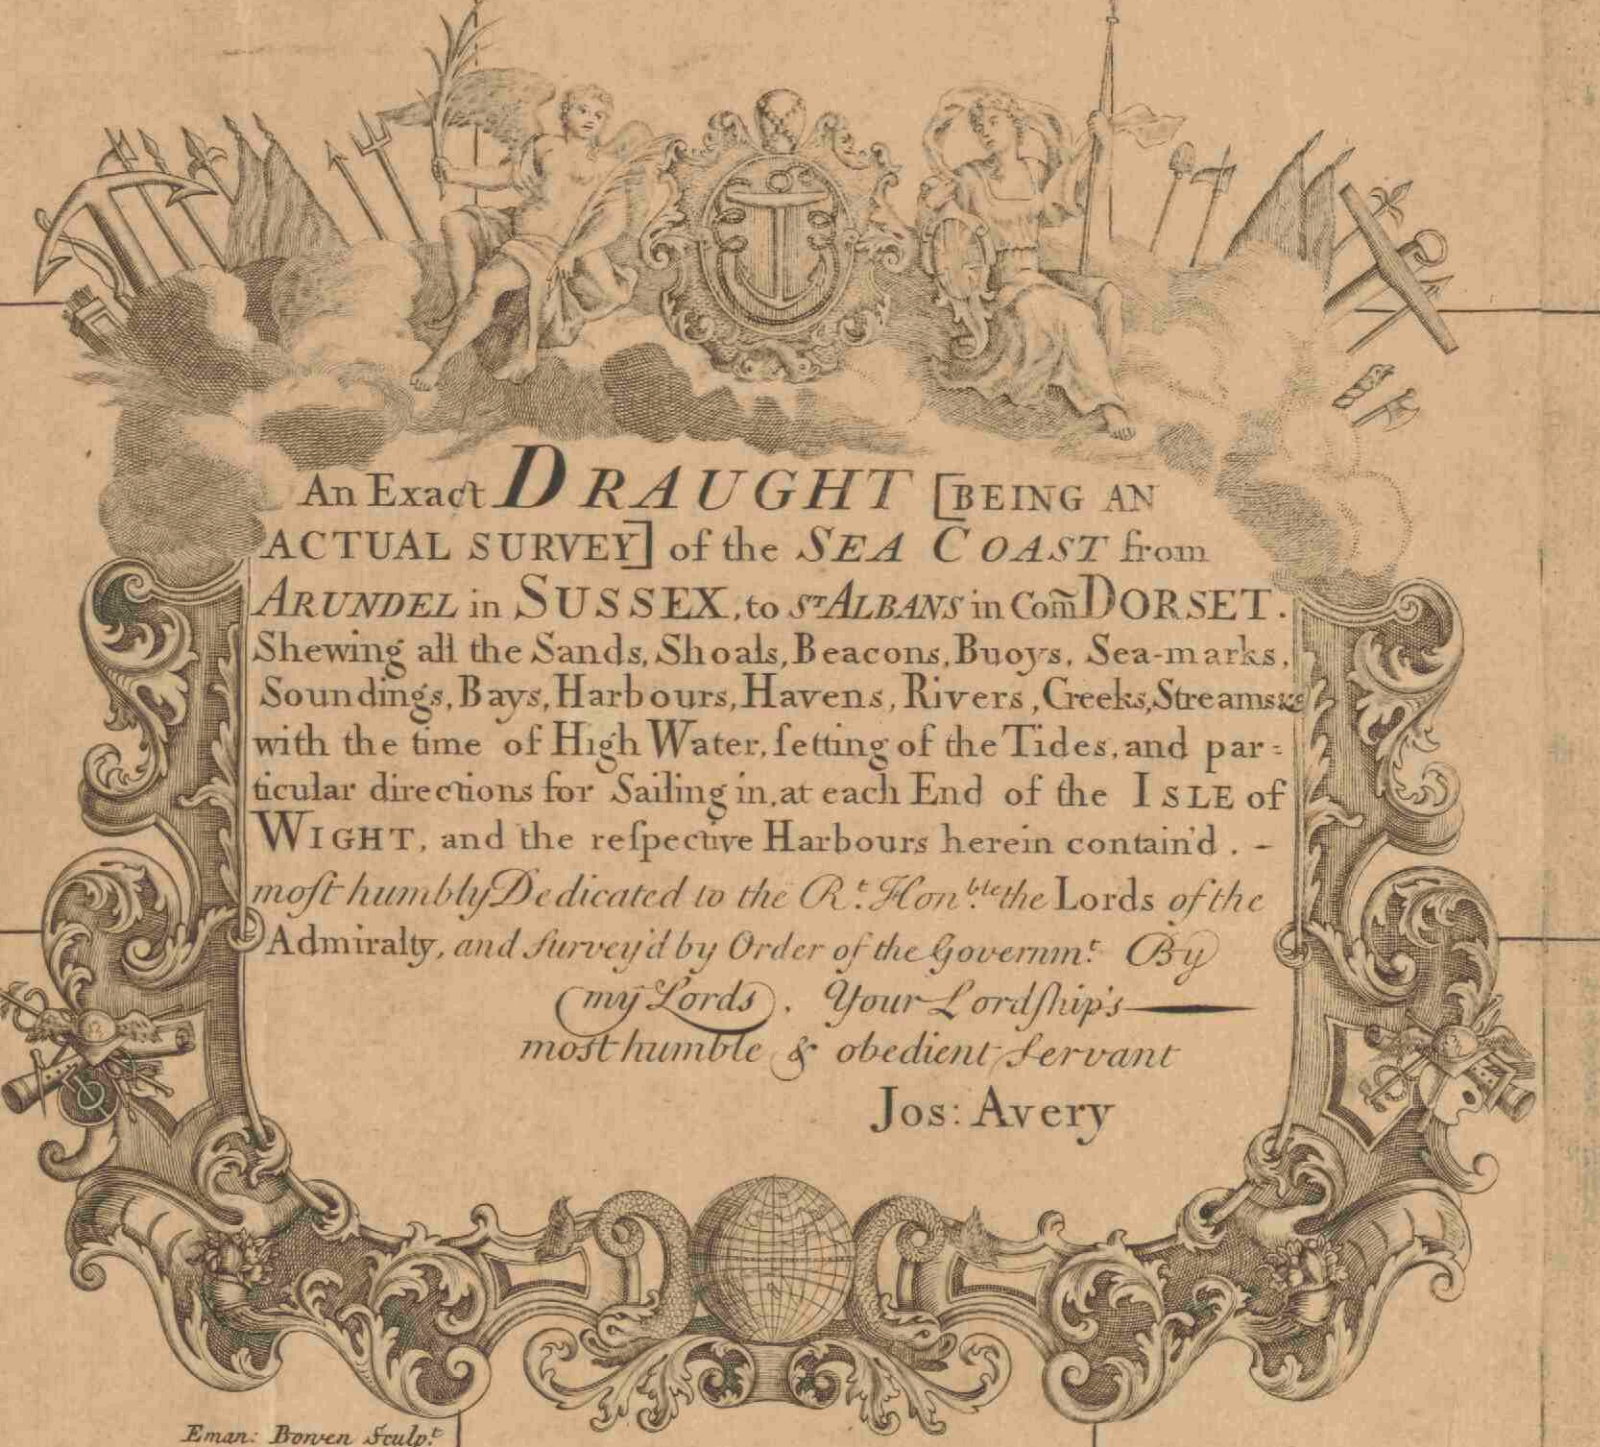 An Exact DRAUGHT [BEING AN
ACTUAL SURVEY] of the SEA COAST from
ARUNDEL in SUSSEX, to ST ALBANS in Com̃ DORSET.
Shewing all the Sands, Shoals, Beacons, Buoys, Sea-marks,
Soundings, Bays, Harbours, Havens, Rivers, Creeks, Streams &c
with the time of High Water, ſetting of the Tides, and par=
ticular directions for Sailing in, at each End of the ISLE of
WIGHT, and the reſpective Harbours herein contain'd. -
moſt humbly Dedicated to the Rt. Honble. the Lords of the
Admiralty, and Survey'd by Order of the Governmt. By
my Lords, Your Lordſhip's
most humble & obedient Servant
Jos: Avery
Eman: Bowen Sculpt.